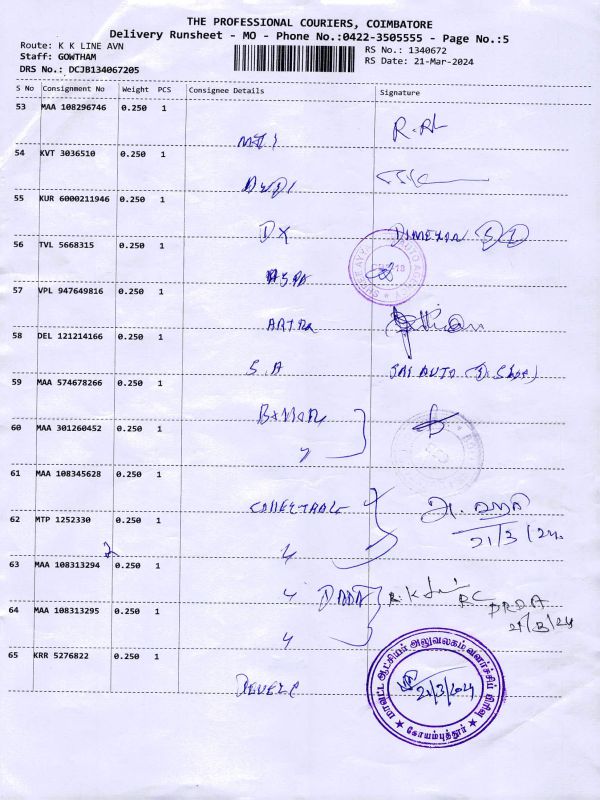 THE PROFESSIONAL COURIERS, COIMBATORE
Delivery Runsheet - MO - Phone No.:0422-3505555 - Page No.:5
Route: K K LINE AVN
RS No.: 1340672
Staff: GOWTHAM
RS Date: 21-Mar-2024
DRS No.: DCJB134067205
S No Consignment No Weight PCS Consignee Details Signature
53 MAA 108296746 0.250 1
R.RL
54 KVT 3036510 0.250 1
55 KUR 6000211946 0.250 1
DX
56 TVL 5668315 0.250 1
57 VPL 947649816 0.250 1
58 DEL 121214166 0.250 1
S.A JAI AUTO
59 MAA 574678266 0.250 1
60 MAA 301260452 0.250 1
61 MAA 108345628 0.250 1
62 MTP 1252330 0.250 1
21/3/24
63 MAA 108313294 0.250 1
DRDA
64 MAA 108313295 0.250 1
21/3/24
65 KRR 5276822 0.250 1
மாவட்ட ஆட்சியர் அலுவலகம் வளர்ச்சிப் பிரிவு
21/3/2024
கோயம்புத்தூர்